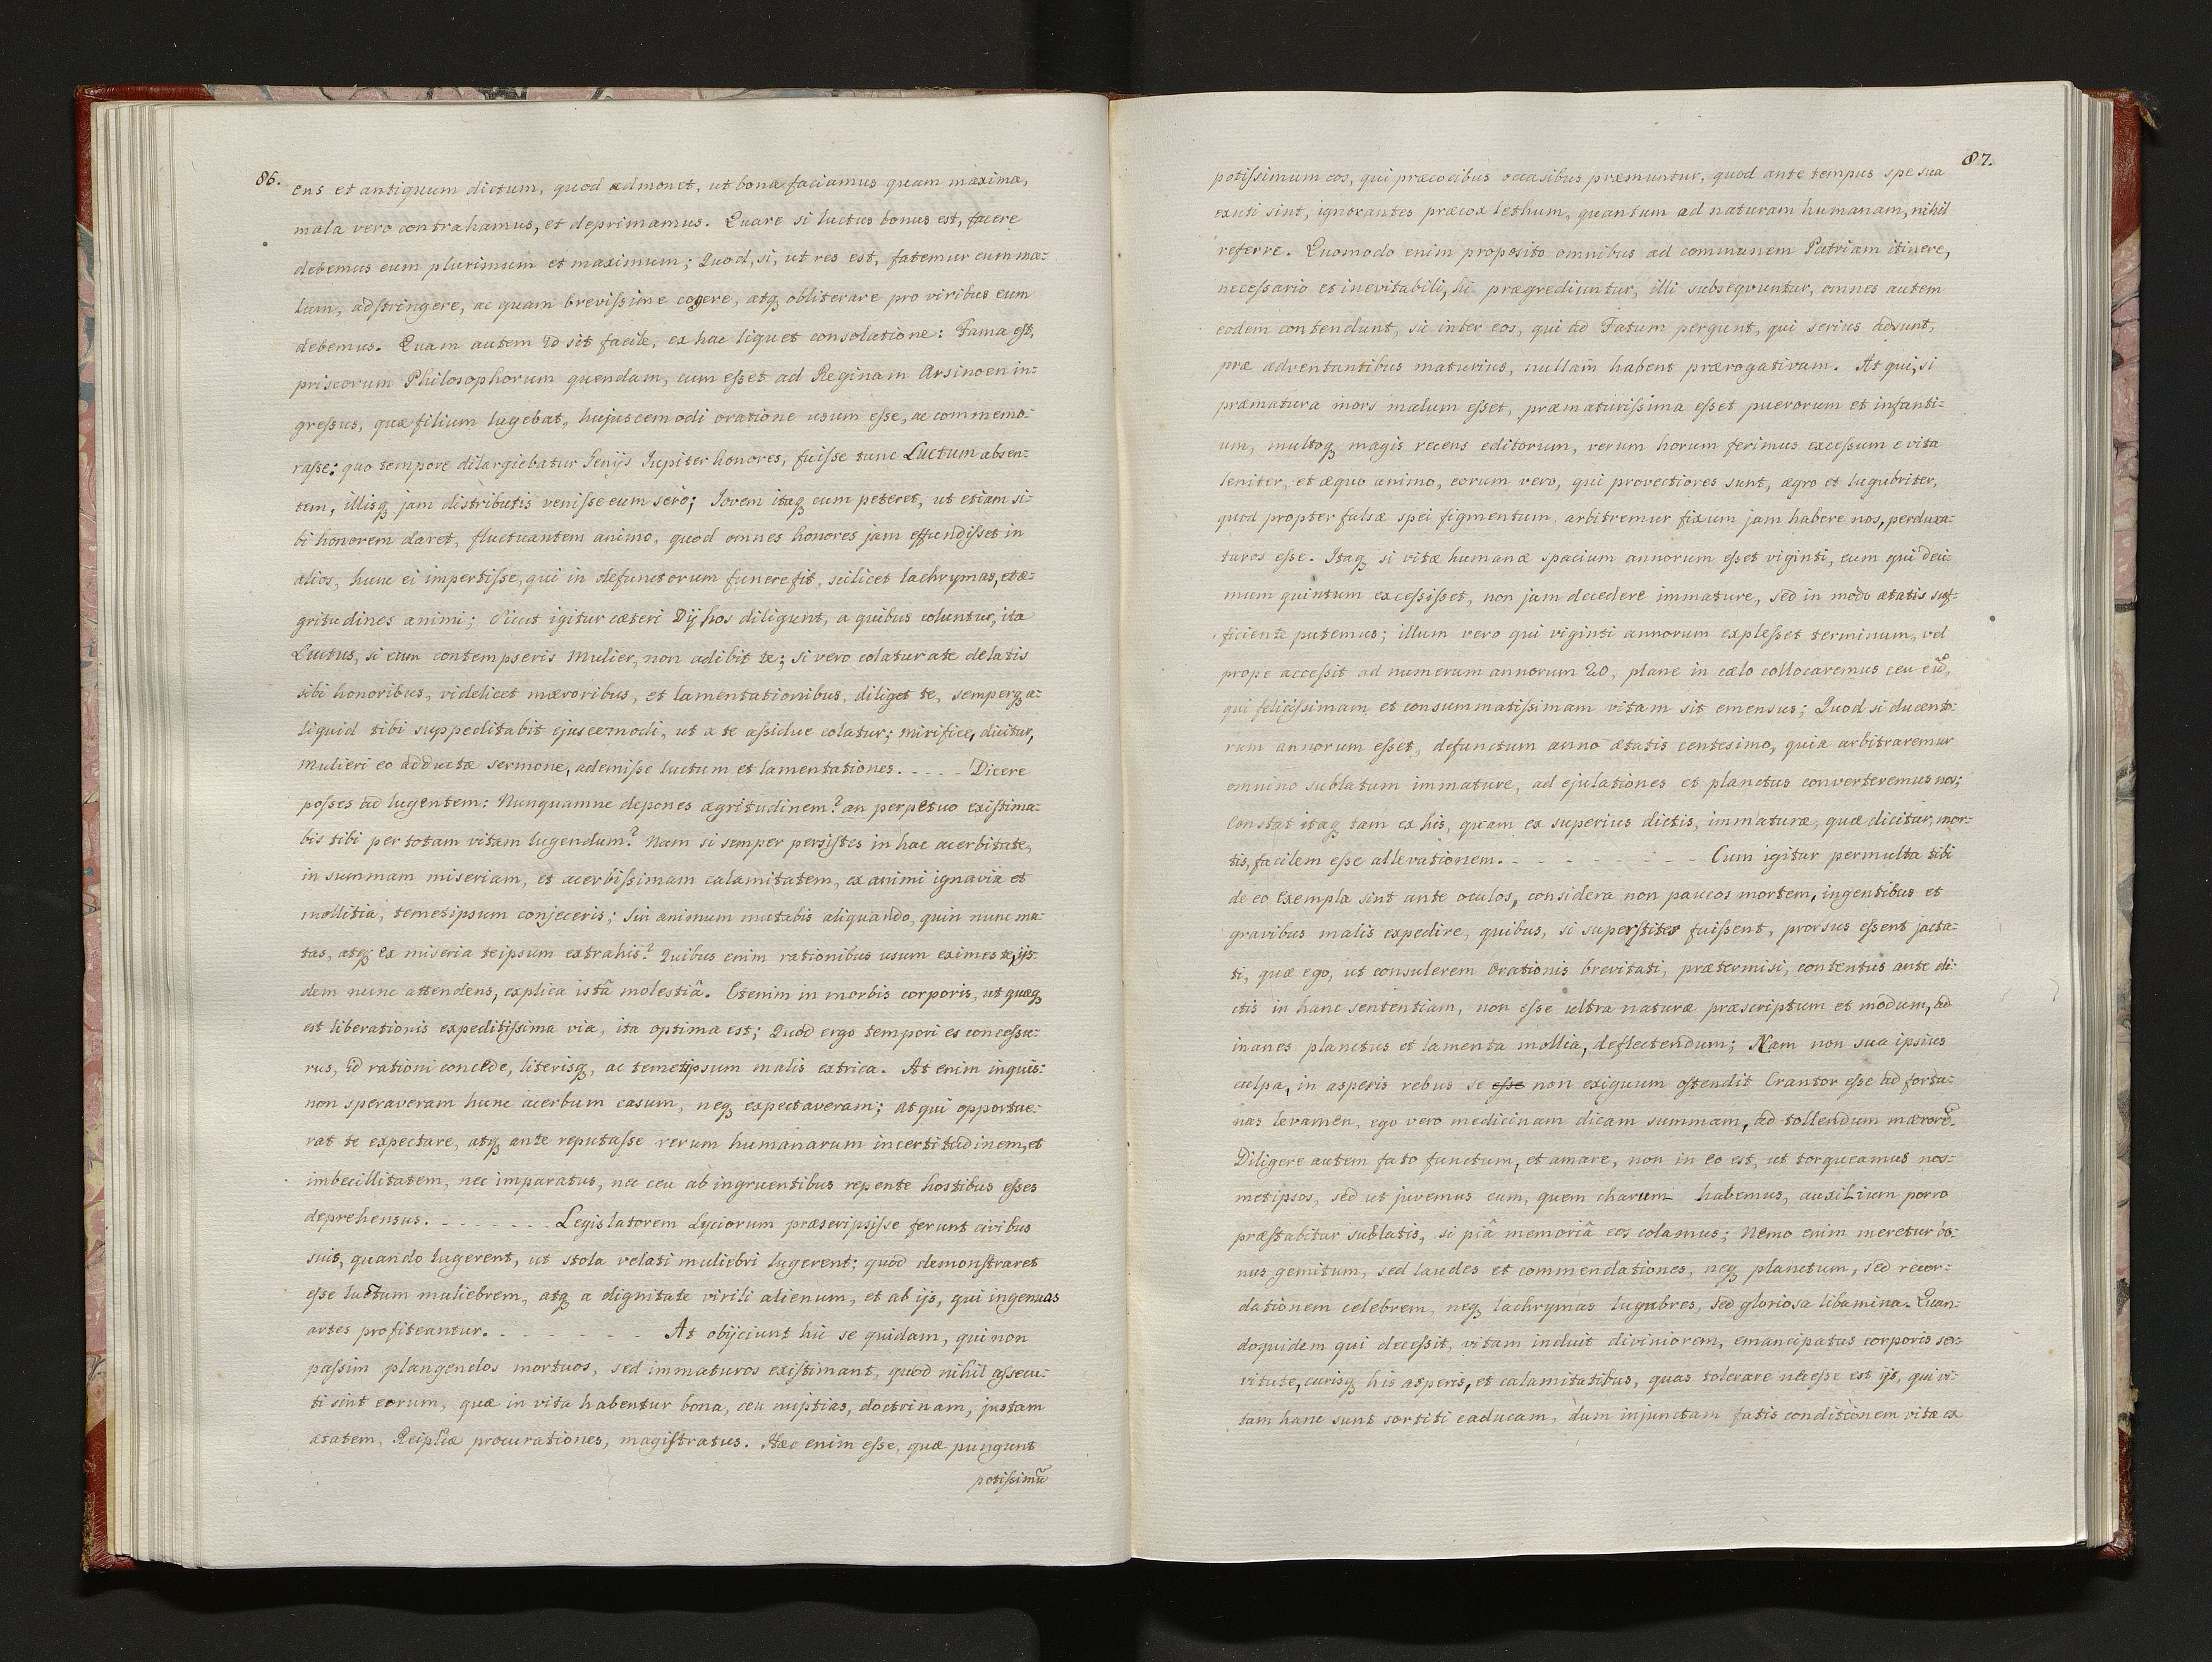 86.
ens et antiquum dictum, quod admonet, ut bona faciamus quam maxima,
mala vero contrahamus, et deprimamus. Quare si luctus bonus est, facere
debemus eum plurimum et maximum; Quod, si, ut res est, fatemur eum ma-
lum, adstringere, ac quam brevissime cogere, atq obliterare pro viribus eum
debemus. Quam autem id sit facile, ex hac liquet consolatione: Fama est,
priscorum Philosophorum quendam, cum esset ad Reginam Arsinoen in-
gressus, quæ filium lugebat, hujuscemodi oratione usum esse, ac commemo-
rasse: quo tempore dilargiebatur Genijs Iupiter honores, fuisse tunc Luctum absen-
tem, illisq jam distributis venisse eum sero; Iovem itaq cum peteret, ut etiam si-
bi honorem daret, fluctuantem animo, quod omnes honores jam effundisset in
alios, hunc ei impertisse, qui in defunctorum funere fit, scilicet lachrymas, et æ-
gritudines animi; Sicut igitur cæteri Dij hos diligunt, a quibus coluntur, ita
Luctus, si eum contempseris Mulier, non adibit te; si vero colatur a te delatis
sibi honoribus, videlicet mæroribus, et lamentationibus, diliget te, semperq a-
liquid tibi suppeditabit ejuscemodi, ut a te assidue colatur; mirifice, dicitur,
mulieri eo adductæ sermone, ademisse luctum et lamentationes. - - - - Dicere
posses ad lugentem: Nunquamne depones ægritudinem? an perpetuo existima-
bis tibi per totam vitam lugendum? Nam si semper persistes in hac acerbitate,
in summam miseriam, et acerbissimam calamitatem, ex animi ignavia et
mollitia, temetipsum conjeceris; Sin animum mutabis aliquando, quin nunc mu-
tas, atq ex miseria teipsum extrahis? Quibus enim rationibus usum eximes te, ijs-
dem nunc attendens, explica istâ molestiâ. Etenim in morbis corporis, ut quæq
est liberationis expeditissima via, ita optima est; Quod ergo tempori es concessu-
rus, id rationi concede, literisq, ac temetipsum malis extrica. At enim inquis:
non speraveram hunc acerbum casum, neq expectaveram; at qui opportue-
rat te expectare, atq ante reputasse rerum humanarum incertitudinem, et
imbecillitatem, nec imparatus, nec ceu ab ingruentibus repente hostibus esses
deprehensus. - - - - - - - Legislatorem Lyciorum præscripsisse ferunt civibus
suis, quando lugerent, ut stola velati muliebri lugerent; quod demonstraret
esse luctum muliebrem, atq a dignitate virili alienum, et ab ijs, qui ingenuas
artes profiteantur. - - - - - - - At obijciunt hic se quidam, qui non
passim plangendos mortuos, sed immaturos existimant, quod nihil assecu-
ti sint eorum, quæ in vita habentur bona, ceu nuptias, doctrinam, justam
ætatem, Reiplicæ procurationes, magistratus. Hæc enim esse, quæ pungunt
potissimū
87.
potissimum eos, qui præcocibus occasibus præmuntur, quod ante tempus spe sua
exuti sint, ignorantes præcox lethum, quantum ad naturam humanam, nihil
referre. Quomodo enim proposito omnibus ad communem Patriam itinere,
necessario et inevitabili, hi prægrediuntur, illi subsequuntur, omnes autem
eodem contendunt, sic inter eos, qui ad Fatum pergunt, qui serius adsunt,
præ adventantibus maturius, nullam habent prærogativam. At qui, si
præmatura mors malum esset, præmaturissima esset puerorum et infanti-
um, multoq magis recens editorum, verum horum ferimus excessum e vita
leniter, et æquo animo, eorum vero, qui provectiores sunt, ægro et lugubriter,
quod propter falsæ spei figmentum arbitremur fixum jam habere nos, perdura-
turos esse. Itaq si vitæ humanæ spacium annorum esset viginti, eum qui deci-
mum quintum excessisset, non jam decedere immature, sed in modo ætatis suf-
ficiente putemus; illum vero qui viginti annorum explesset terminum, vel
prope accessit ad numerum annorum 20, plane in cælo collocaremus ceu eū,
qui felicissimam et consummatissimam vitam sit emensus; Quod si ducento-
rum annorum esset, defunctum anno ætatis centesimo, quia arbitraremur
omnino sublatum immature, ad ejulationes et planctus converteremus nos;
Constat itaq tam ex his, quam ex superius dictis, immaturæ, quæ dicitur, mor-
tis, facilem esse allevationem. - - - - - - - - Cum igitur permulta tibi
de eo exempla sint ante oculos, considera non paucos mortem, ingentibus et
gravibus malis expedire, quibus, si superstites fuissent, prorsus essent jacta-
ti, quæ ego, ut consulerem orationis brevitati, prætermisi, contentus ante di-
ctis in hanc sententiam, non esse ultra naturæ præscriptum et modum, ad
inanes planctus et lamenta mollia, deflectendum; Nam non sua ipsius
culpa, in asperis rebus se esse non exiguum ostendit Crantor esse ad fortu-
nas levamen, ego vero medicinam dicam summam, ad tollendum mærorē.
Diligere autem fato functum, et amare, non in eo est, ut torqueamus nos-
metipsos, sed ut juvemus eum, quem charum habemus, auxilium porro
præstabitur sublatis, si piâ memoriâ eos colamus; Nemo enim meretur bo-
nus gemitum, sed laudes et commendationes, neq planctum, sed recor-
dationem celebrem, neq lachrymas lugubres, sed gloriosa libamina. Quan-
doquidem qui decessit, vitam induit diviniorem, emancipatus corporis ser-
vitute, curisq his asperis, et calamitatibus, quas tolerare necesse est ijs, qui vi-
tam hanc sunt sortiti caducam, dum injunctam fatis conditionem vitæ ex